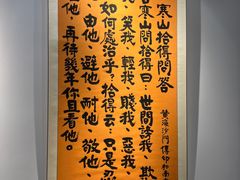 寒山拾得問答
昔寒山問拾得曰：世間謗我、欺
我、笑我、輕我、賤我、惡我
如何處治乎？拾得云：只是忍
、由他、避他、耐他、敬他、
他、再待幾年你且看他。